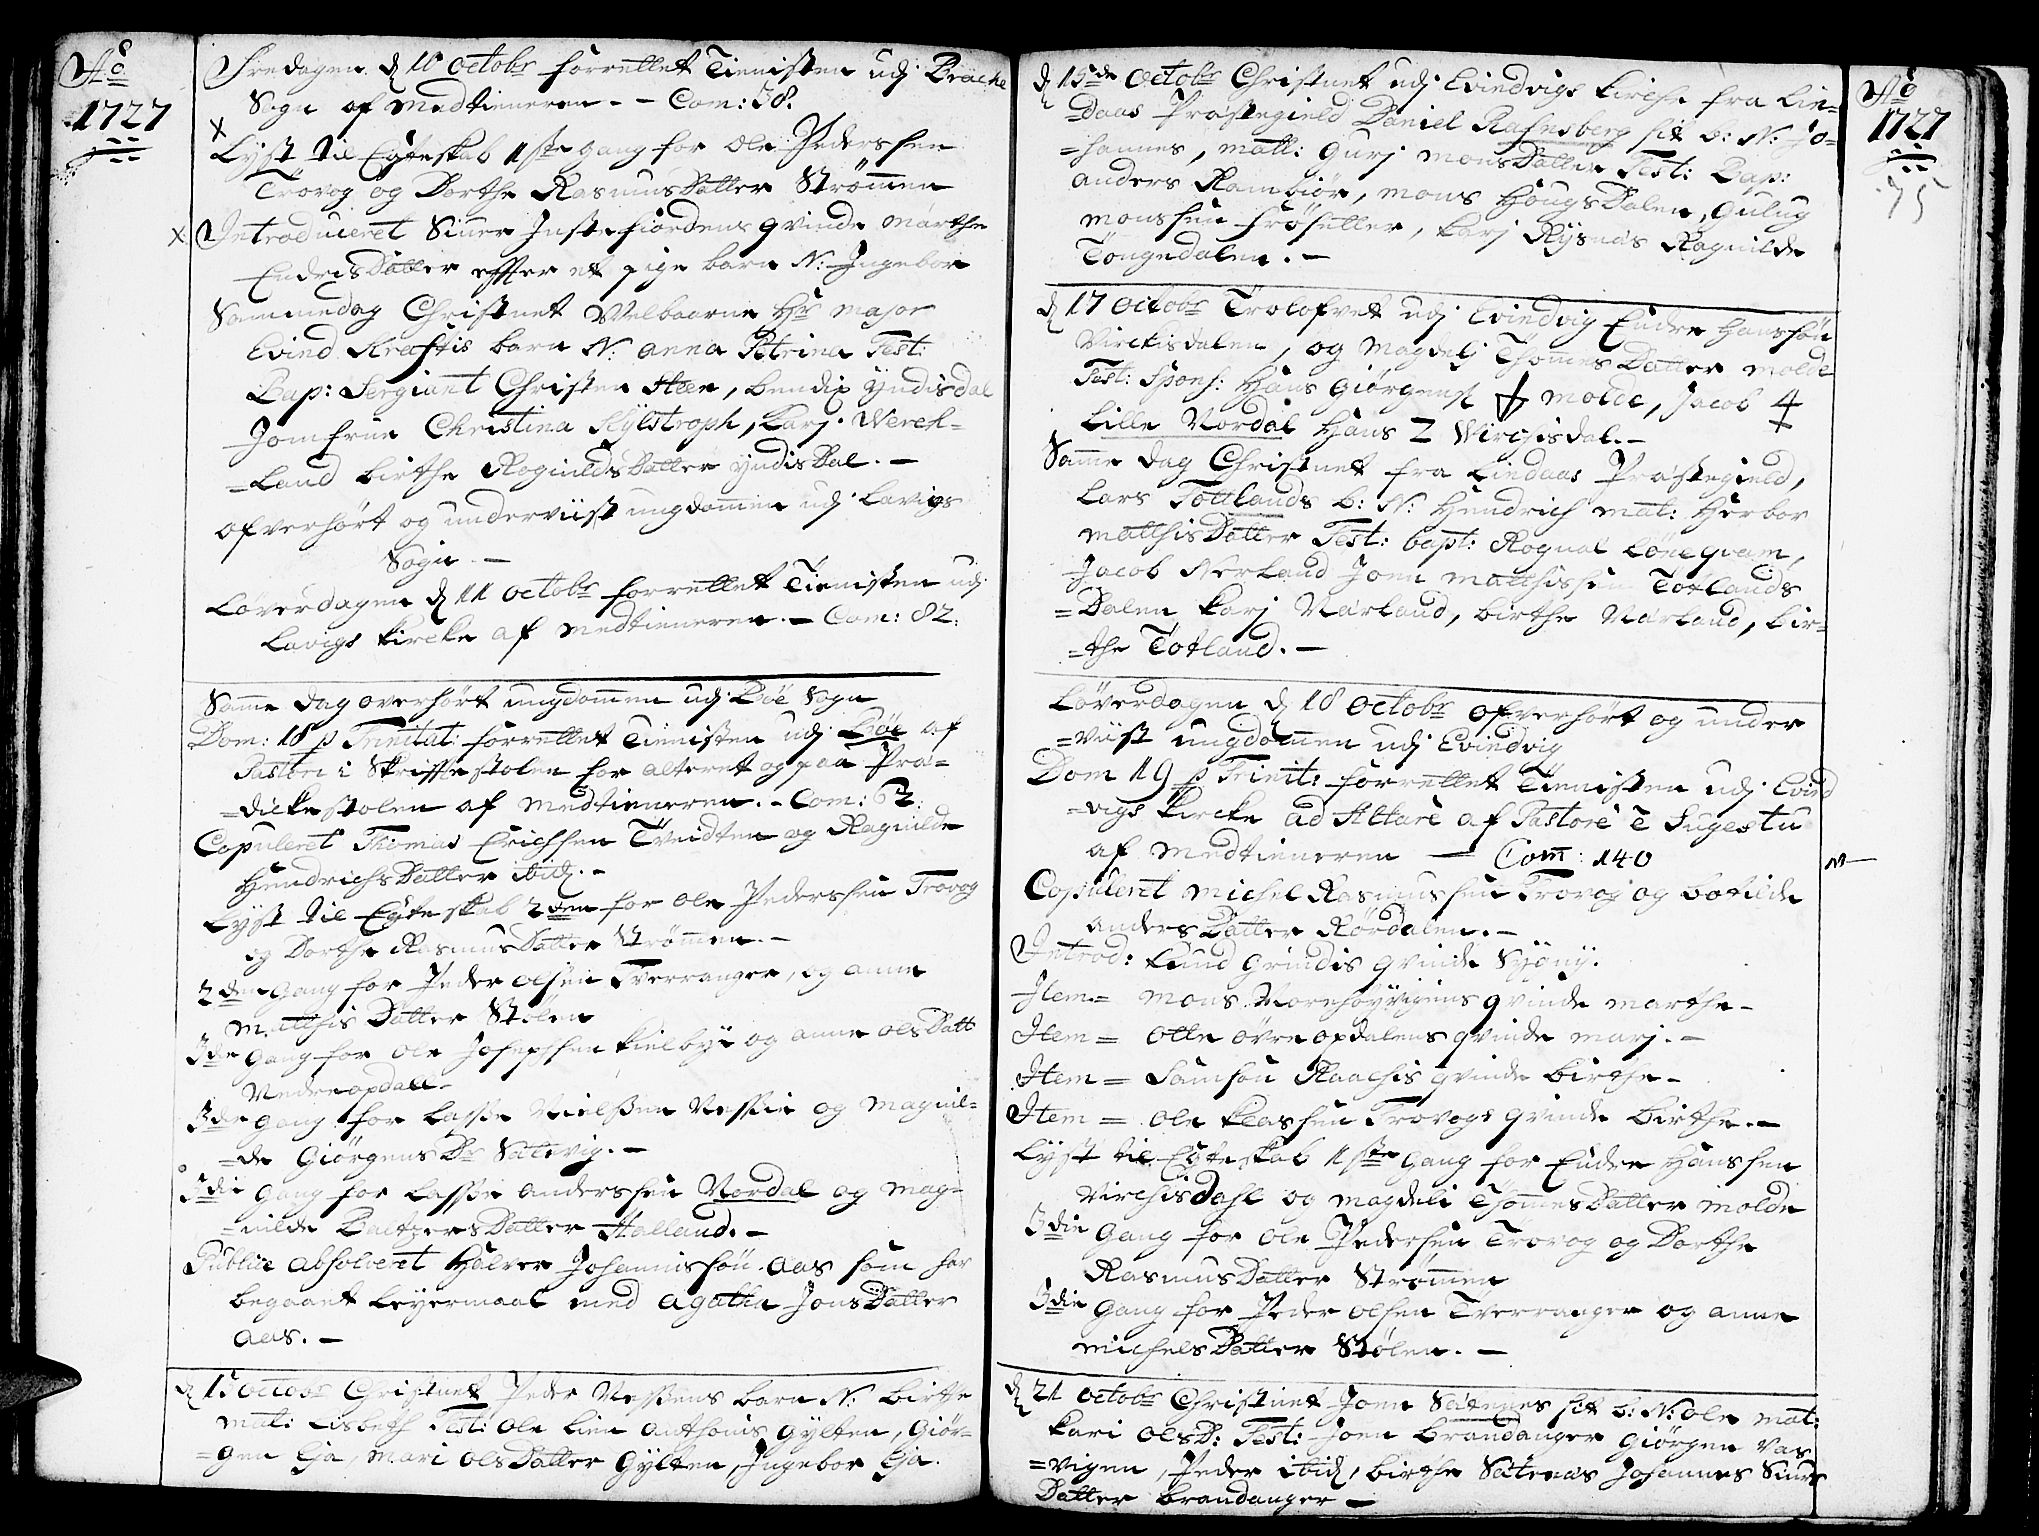 Aō
1727
Fredagen d 10 octobr forrettet Tienisten udj Bræche
Sogn af Medtieneren. - Com: 38.
x
Lyst til Egteskab 1ste gang for Ole Pedershen
Trovog og Dorthe RasmusDatter Strømmen
x Introduceret Siver Instefiordens qvinde Marthe
EndrisDatter effter et pige barn N: Ingebor
Sammedag Christnet Welbaarne Hr Major
Evind Krefftis barn N: Anna Petrina Test:
Bap: Sergiant Christen Steen, bendix Yndisdal
Jomfrue Christina Kylstroph, Karj Werek-
-land birthe RognildsDatter YndisDal. -
ofverhørt og underviist ungdommen udj Lavigs
Sogn. -
Løverdagen d 11 octobr forrettet Tienisten udj
Lavigs Kircke af Medtieneren. - Com: 82.
Samme dag overhørt ungdommen udj Bøe Sogn
Dom: 18 p Trinitat: forrettet Tienisten udj Bøe af
Pastore i Skrifftestolen for alteret og paa Præ-
-dickestolen af Medtieneren. - Com: 62.
Copuleret Thomas Erichsen Tveidten og Ragnilde
HendrichsDatter ibid. -
Lyst til Egteskab 2den for Ole Pedershen Trovog
og Dorthe RasmusDatter Strømmen. -
2den gang for Peder Olsen Tverranger, og Anne
MatthisDatter Stølen
3die gang for Ole Josephsen Kielbye og Anne OlsDatt
Nedreopdall. -
3die gang for Lasse Nielssen Nessie og Magnil-
-de GiørgensDr Sætevig. -
3die gang for Lasse Andershen Nordal og Mag-
-nilde BaltzersDatter Halland. -
Publice absolveret Halver Johannissøn Aas som har
begaaet Leyermaal med Agatha JonsDatter
Aas. -
d 15 octobr Christnet Peder Nessens barn N: birthe
Mat: Lisbeth Test: Ole Lien Anthonis Gylten, Giør-
-gen Eja, Mari OlsDatter Gylten, Ingebor Eja.
d 15de octobr Christnet udj Evindvigs Kirche fra Lin-
-daas Præstegield Daniel Rafnsberg sit b: N: Jo-
-hannes, Matt: Gurj MonsDatter Test: Bap:
Anders Rambiør, Mons HougsDalen, Gulug
Monssen Frøsetter, Karj Rysnæs Ragnilde
Tongedalen. -
d 17 octobr Trolofvet udj Evindvig Endre Hanssøn
Virckisdalen, og Magdelj ThomesDatter Molde
Test: Spons: Hans Giørgens Molde, Jacob
Lille Nordal Hans Z Wirchisdal. -
Samme dag Christnet fra Lindaas Præstegield,
Lars Tottlands b: N: Hendrich Mat: Herbor
MatthisDatter Test: bapt: Rognal Løneqvam,
Jacob Nerland Joen Matthissen Totlands
-Dalen Karj Nærland, birthe Nærland, bir-
-the Totland. -
Løverdagen d 18 octobr ofverhørt og under
-viist ungdommen udj Evindvig
Dom 19 p Trinit: forrettet Tienisten udj Evind
-vigs Kircke ad Altare af Pastore e Sugestu
af Medtieneren — Com: 140
Copuleret Michel Rasmussen Trovog og botilde
AndersDatter Rørdalen. -
Introd: Knud Grindis qvinde Syøny.
Item = Mons Norehøyvigens qvinde Marthe -
Item = Otte Øvreopdalens qvinde Marj. -
Item = Samson Raachis qvinde birthe -
Item = Ole Klashen Trovogs qvinde birthe. -
Lyst til Egteskab 1ste gang for Endre Hanshen
Virchisdahl og Magdeli ThomesDatter Molde
3die gang for Ole Pedersen Trovog og Dorthe
RasmusDatter Strømmen
3die gang for Peder Olsen Tverranger og Anne
MichelsDatter Stølen. -
d 21 octobr Christnet Joen Sætenes sit b: N: Ole Mat:
Kari OlsD: Test: Joen brandanger Giørgen Vas
-vigen, Peder ibid, birthe Sætenæs Johannes Siurs
Datter brandanger -
Aō
1727
75